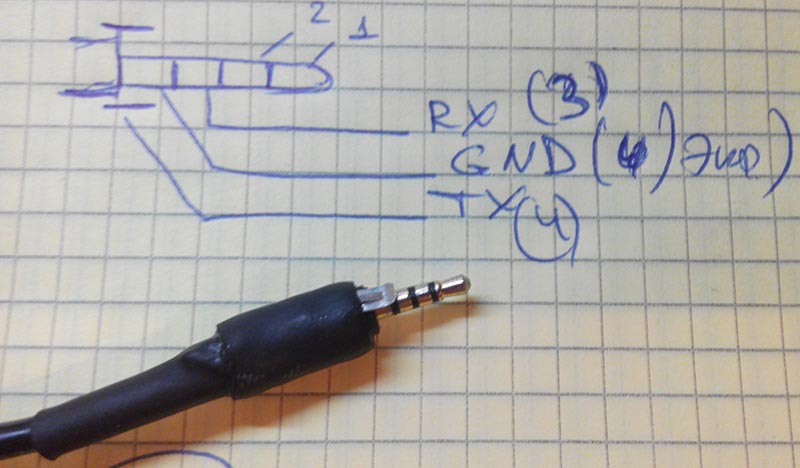 2 1
RX (3)
GND (4) Экр)
TX (4)